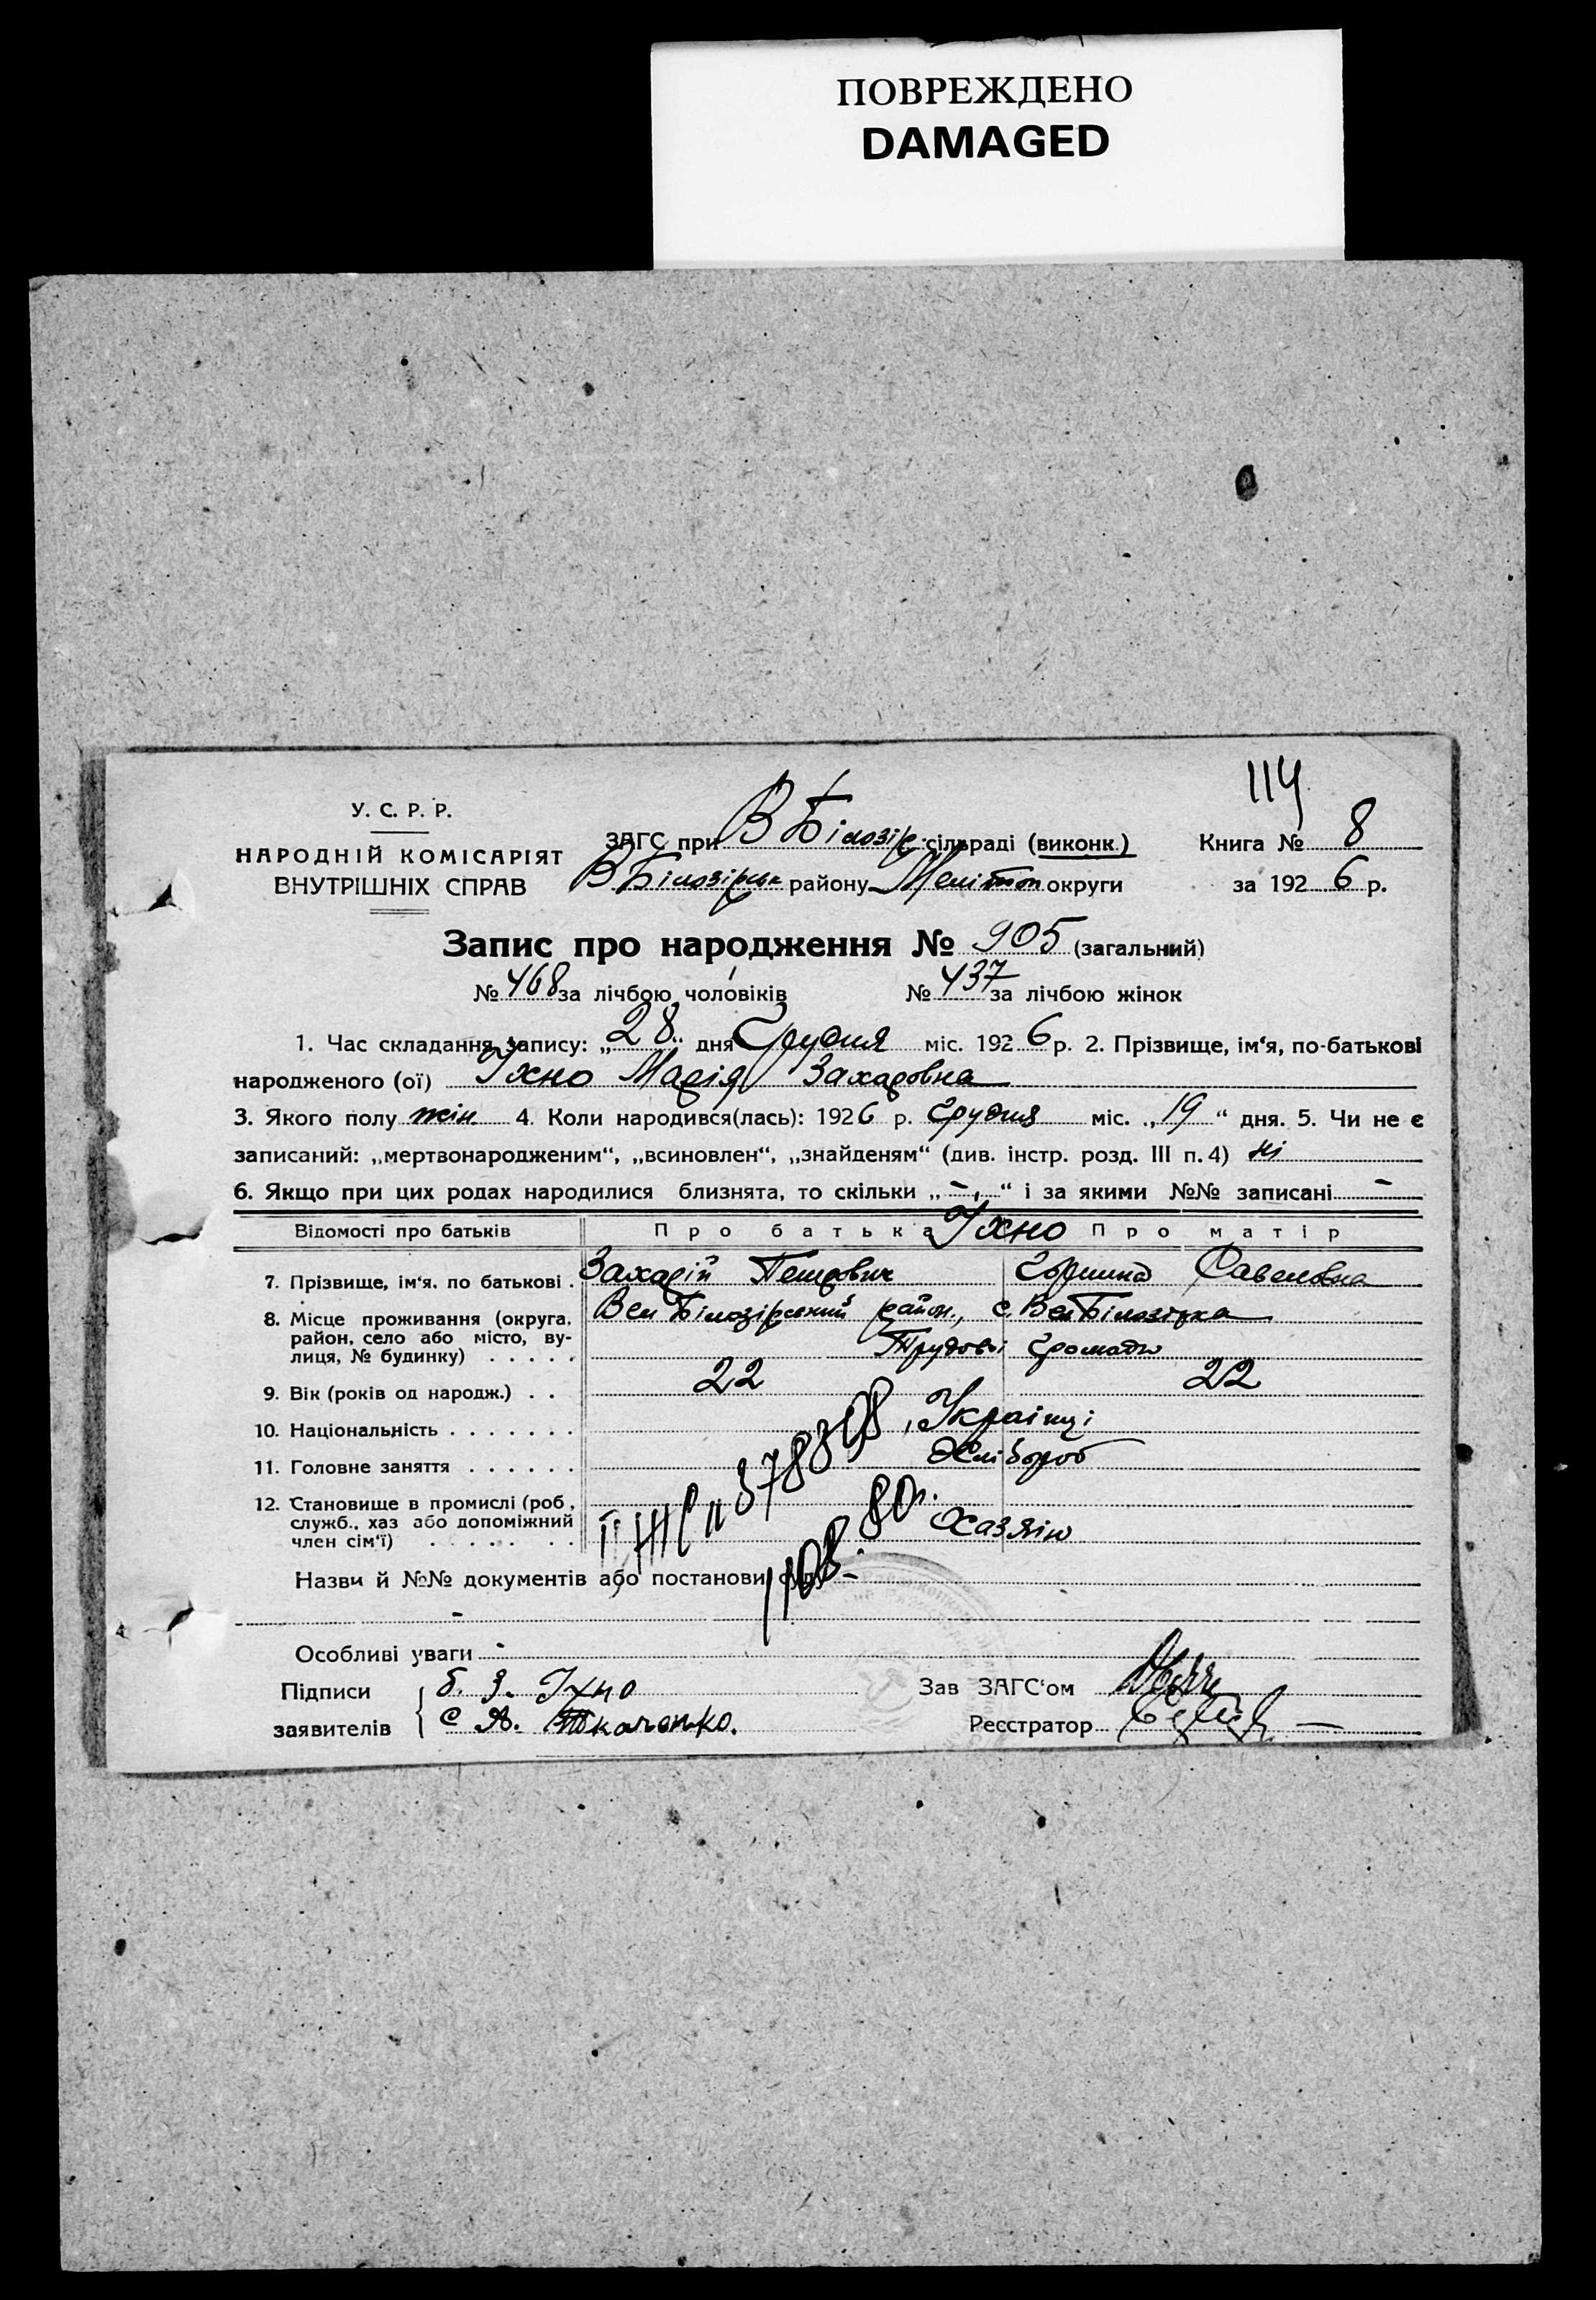 ПОВРЕЖДЕНО
DAMAGED
114
У. С. Р. Р.
НАРОДНІЙ КОМІСАРІЯТ
ВНУТРІШНІХ СПРАВ
ЗАГС при В Білозір. сільраді (виконк.) Книга № 8
В Білозірськ району Меліт оп округи за 1926 р.
Запис про народження № 905 (загальний)
№ 468 за лічбою чоловіків № 437 за лічбою жінок
1. Час складання запису: „28“ дня Грудня міс. 1926 р. 2. Прізвище, ім‘я, по-батькові
народженого (ої) Ухно Марія Захаровна
3. Якого полу жін. 4. Коли народився(лась): 1926 р. Грудня міс. „19“ дня. 5. Чи не є
записаний: „мертвонародженим“, „всиновлен“, „знайденям“ (див. інстр. розд. III п. 4) ні
6. Якщо при цих родах народилися близнята, то скільки „-“ і за якими №№ записані -
Відомості про батьків Про батька Ухно Про матір
7. Прізвище, ім‘я, по батькові . Захарій Петрович Савеловна
8. Місце проживання (округа, район, село або місто, вулиця, № будинку) . . . . . Вел Білозірський район, с. Вел Білозірка
Трудової Громади
9. Вік (років од народж.) . . 22 22
10. Національність . . . . . . . Українці
11. Головне заняття . . . . . . Хлібороб
12. Становище в промислі (роб., служб., хаз або допоміжний член сім‘ї) . . . . . . . Хазяїн
Назви й №№ документів або постанови
Особливі уваги -
Підписи б. З. Ухно Зав ЗАГС‘ом
заявителів с А. Ткаченко. Реєстратор